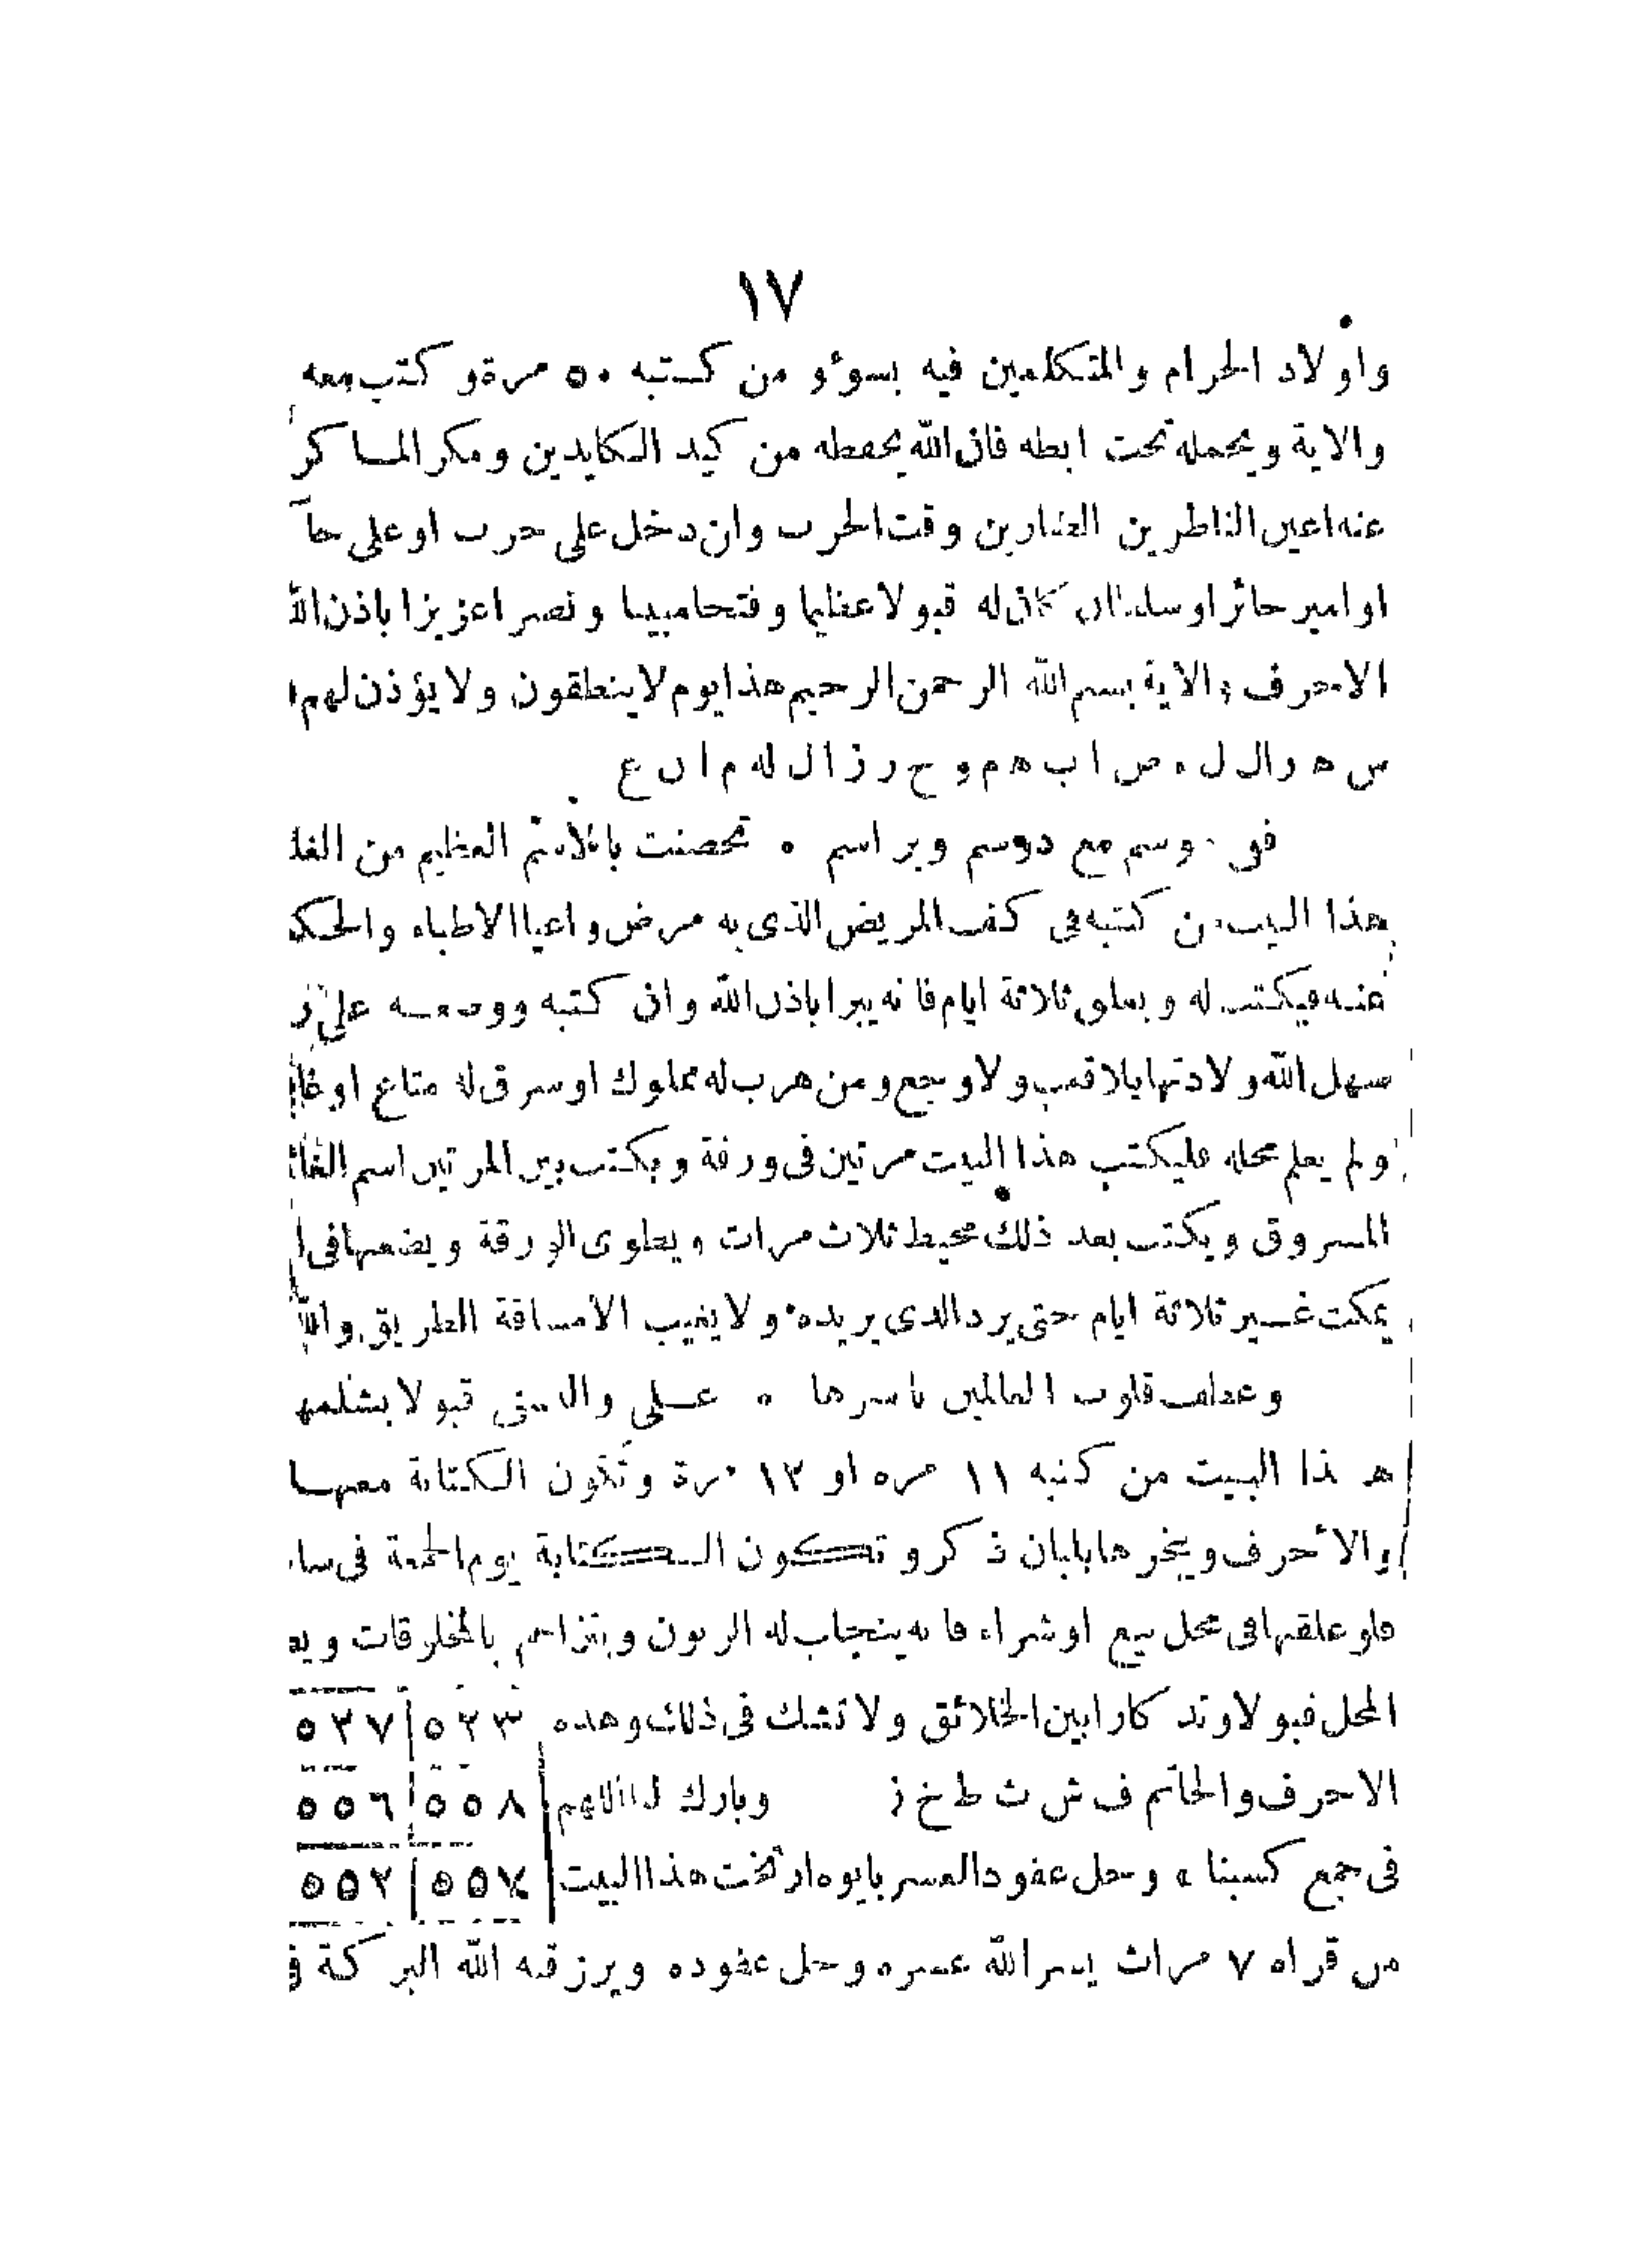 ١٧
واولاد الحرام والمتكلمين فيه بسوء ومن كتبه ٥٠ مرة وكتب معه
والاية ويحمله تحت ابطه فان الله يحفظه من كيد الكايدين ومكر الماكر
عنه اعين الناظرين الضاربن وقت الحرب وان دخل على حرب او على حا
او امير جائر او سلطان كان له قبولا عظيما وفتحا مبينا ونصرا عزيزا باذن الله
الاحرف والاية بسم الله الرحمن الرحيم هذا يوم لا ينطقون ولا يؤذن لهم
س ه و ال ل ه ص ا ب ه م و ح ر ز ا ل له م ا ن ع
وسم مع دوسم وبراسم ٠ تحصنت بالاسم العظيم من الغل
هذا البيت من كتبه فى كف المريض الذى به مرض واعيا الاطباء والحك
عنه فيكتب له ويعلق ثلاثة ايام فانه يبرا باذن الله وان كتبه ووضعه على
سهل الله ولادتها بلا تعب ولا وجع ومن هرب له مملوك او سرق له متاع او غا
ولم يعلم محله فليكتب هذا البيت مرتين فى ورقة ويكتب بين المرتين اسم الغا
المسروق ويكتب بعد ذلك محيط ثلاث مرات ويطوى الورقة ويضعها فى ا
يمكت غير ثلاثة ايام حتى يرد الذى يريده ولا يغيب الامسافة الطريق والله
وعطف قلوب العالمين باسرها ٠ على والبسنى قبولا بشلمه
هذا البيت من كتبه ١١ مره او ١٣ مرة وتكون الكتابة معها
والأحرف ويبخرها بلبان ذكر وتكون الكتابة يوم الجمعة فى سا
فلو علقها فى محل بيع او شراء فانه ينجاب له الزبون ويتزاحم بالمخلوقات و
المحل قبولا وتذكارا بين الخلائق ولا تشك فى ذلك وهذه ٥٢٣ ٥٢٧
الاحرف والخاتم ف ش ث ظ خ ز وبارك لنا اللهم ٥٥٨ ٥٥٦
فى جمع كسبنا ٠ وحل عقود العسر بايوه ارتخت هذا البيت ٥٥٧ ٥٥٢
من قراه ٧ مرات يسر الله عسره وحل عقوده ويرزقه الله البركة ف